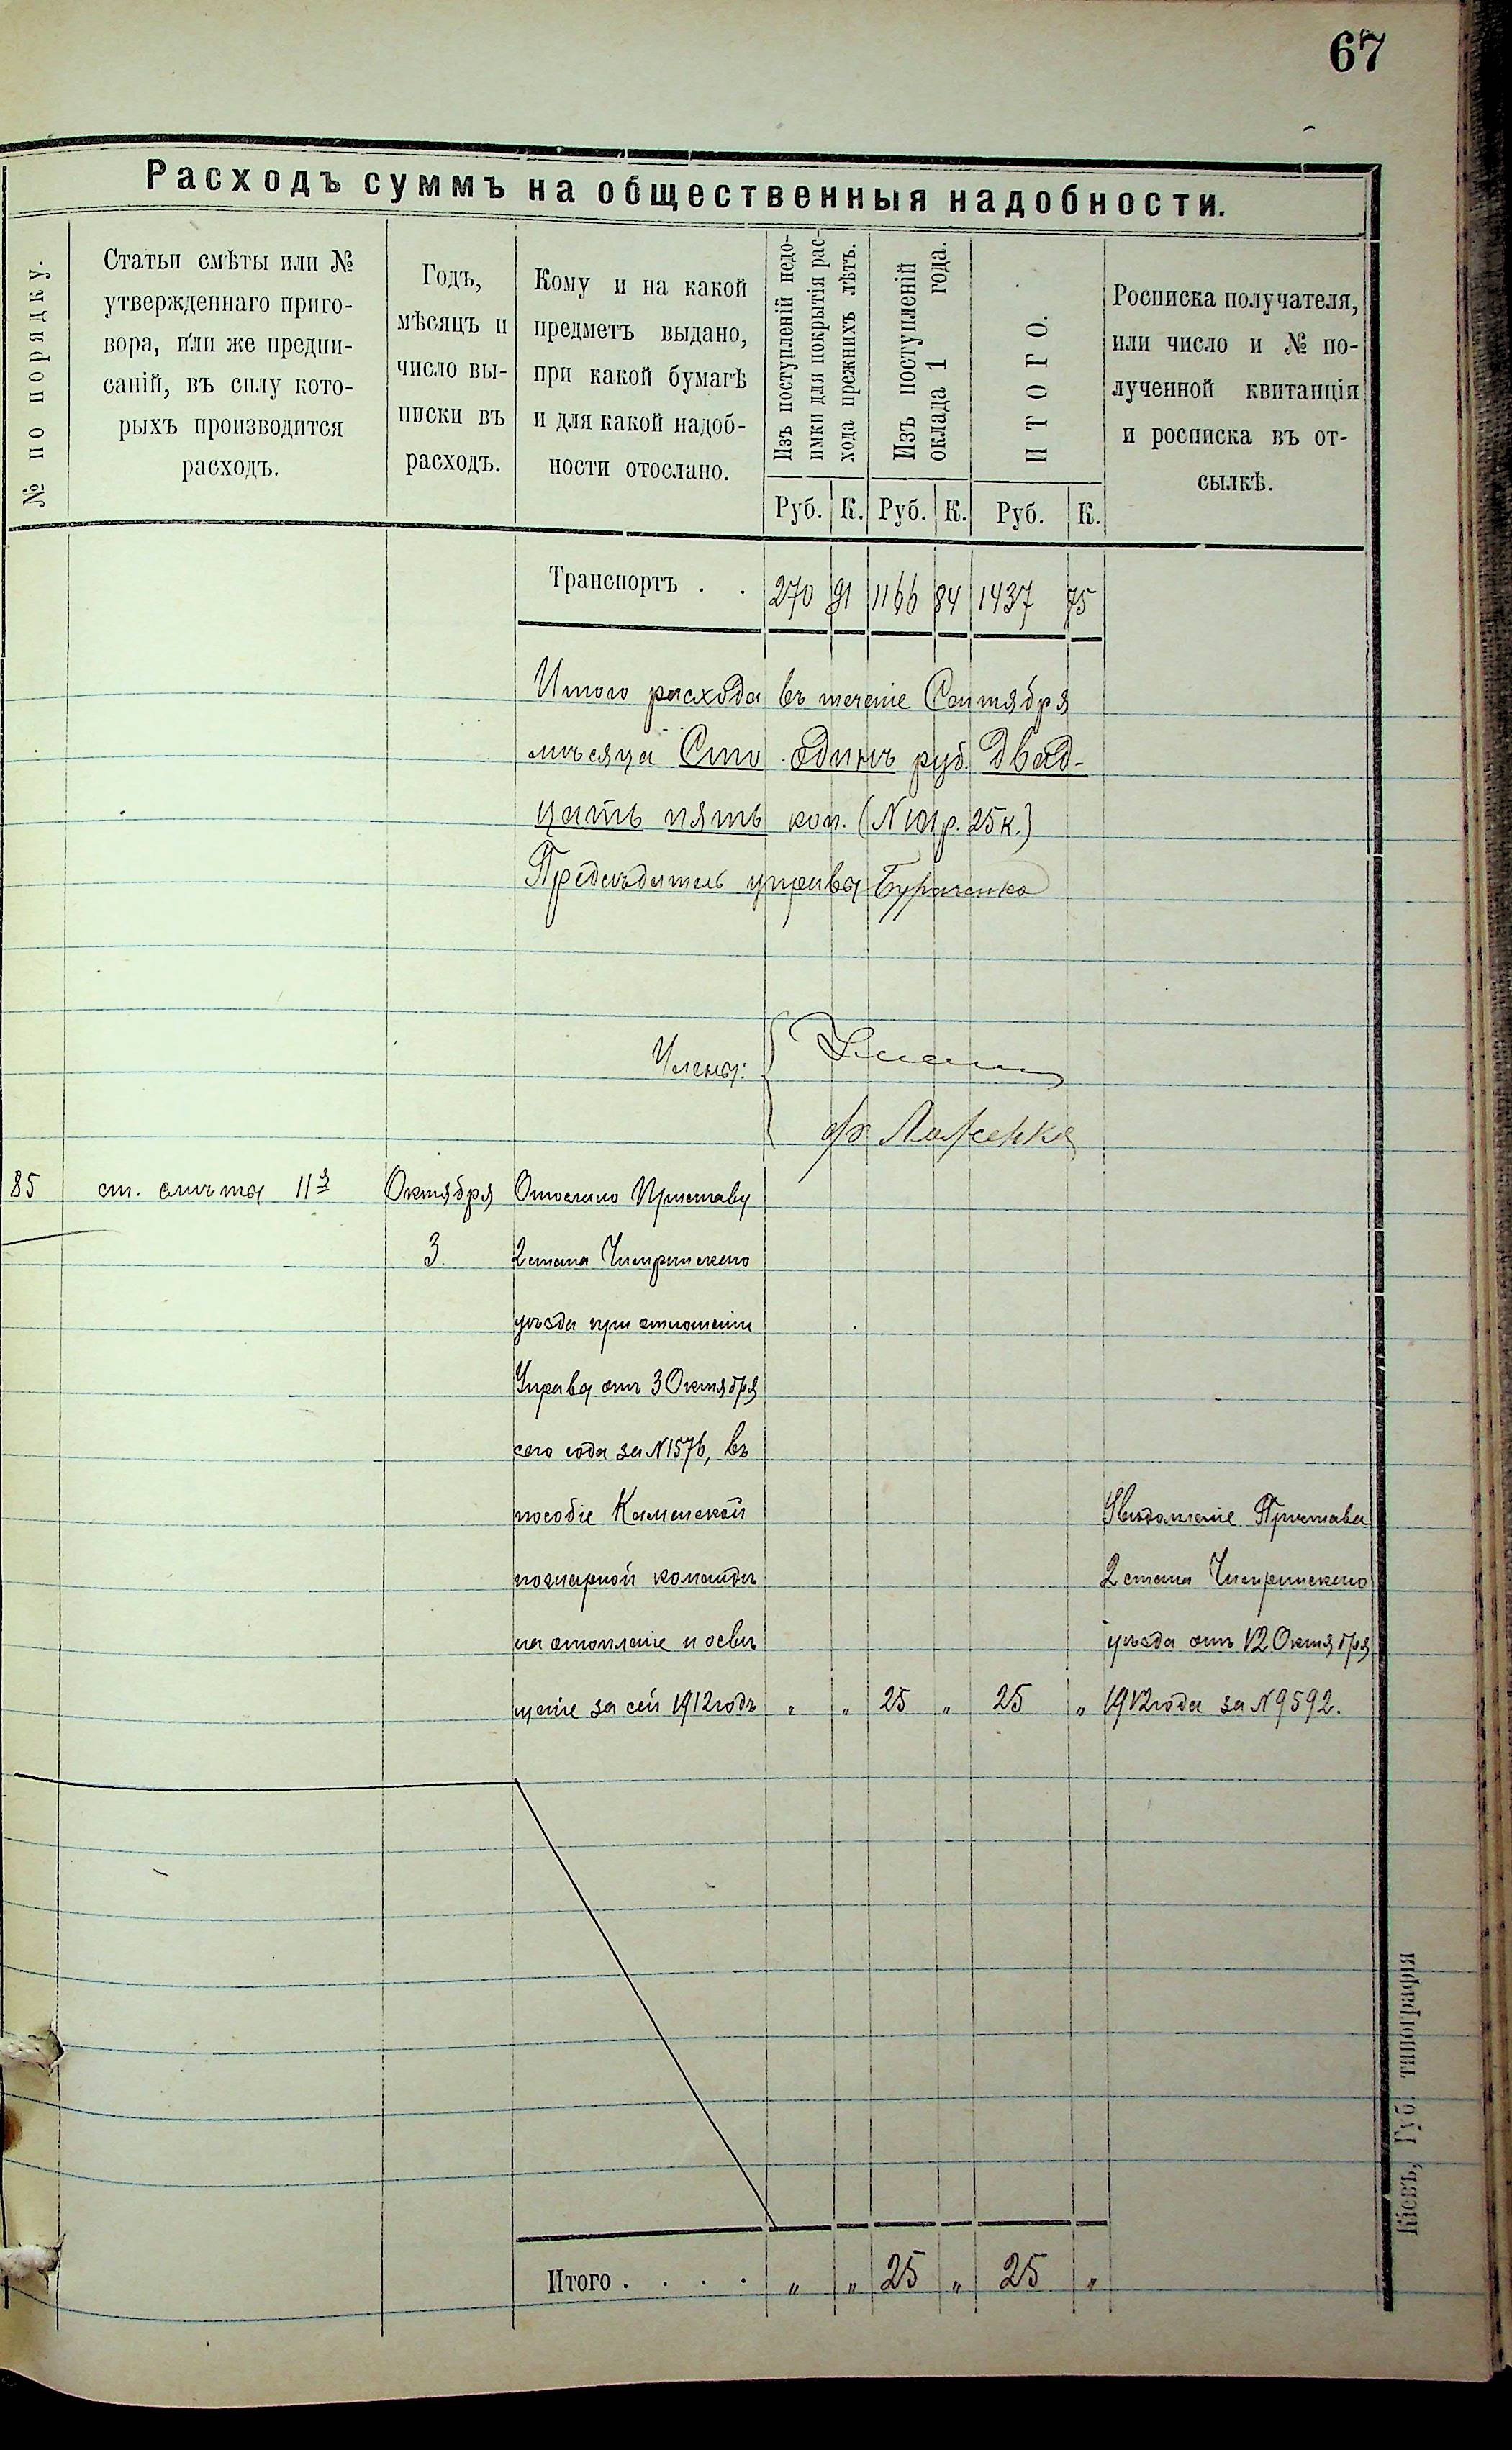 67
Расходъ суммъ на общественныя надобности.
№ по порядку.
Статьи смѣты или №
утвержденнаго приго-
вора, или же предпи-
саній, въ силу кото-
рыхъ производится
расходъ.
Годъ,
мѣсяцъ и
число вы-
писки въ
расходъ.
Кому и на какой
предметъ выдано,
при какой бумагѣ
и для какой надоб-
ности отослано.
Изъ поступленій недо-
имки для покрытія рас-
хода прежнихъ лѣтъ.
Изъ поступленій
оклада 1 года.
ИТОГО.
Росписка получателя,
или число и № по-
лученной квитанціи
и росписка въ от-
сылкѣ.
Руб. К. Руб. К. Руб. К.
Транспортъ . . 270 91 1166 84 1437 75
Итого расхода въ теченіе Сентября
мѣсяца Сто одинъ руб. двад-
цать пять коп. (№ 101 р. 25 к.)
Предсѣдатель управы
Члены:
85 ст. смѣты 11я Октября Отослано Приставу
3. 2 стана Чигиринскаго
уѣзда при отношеніи
Управы отъ 3 Октября
сего года за №1576, въ
пособіе Каменской
пожарной командѣ
на отопленіе и освѣ
щеніе за сей 1912 годъ „ „ 25 „ 25 „
Увѣдомленіе Пристава
2 стана Чигиринскаго
уѣзда отъ 12 Октября
1912 года за №9592.
Итого . . . . „ „ 25 „ 25 „
Кіевъ, Губ. типографія